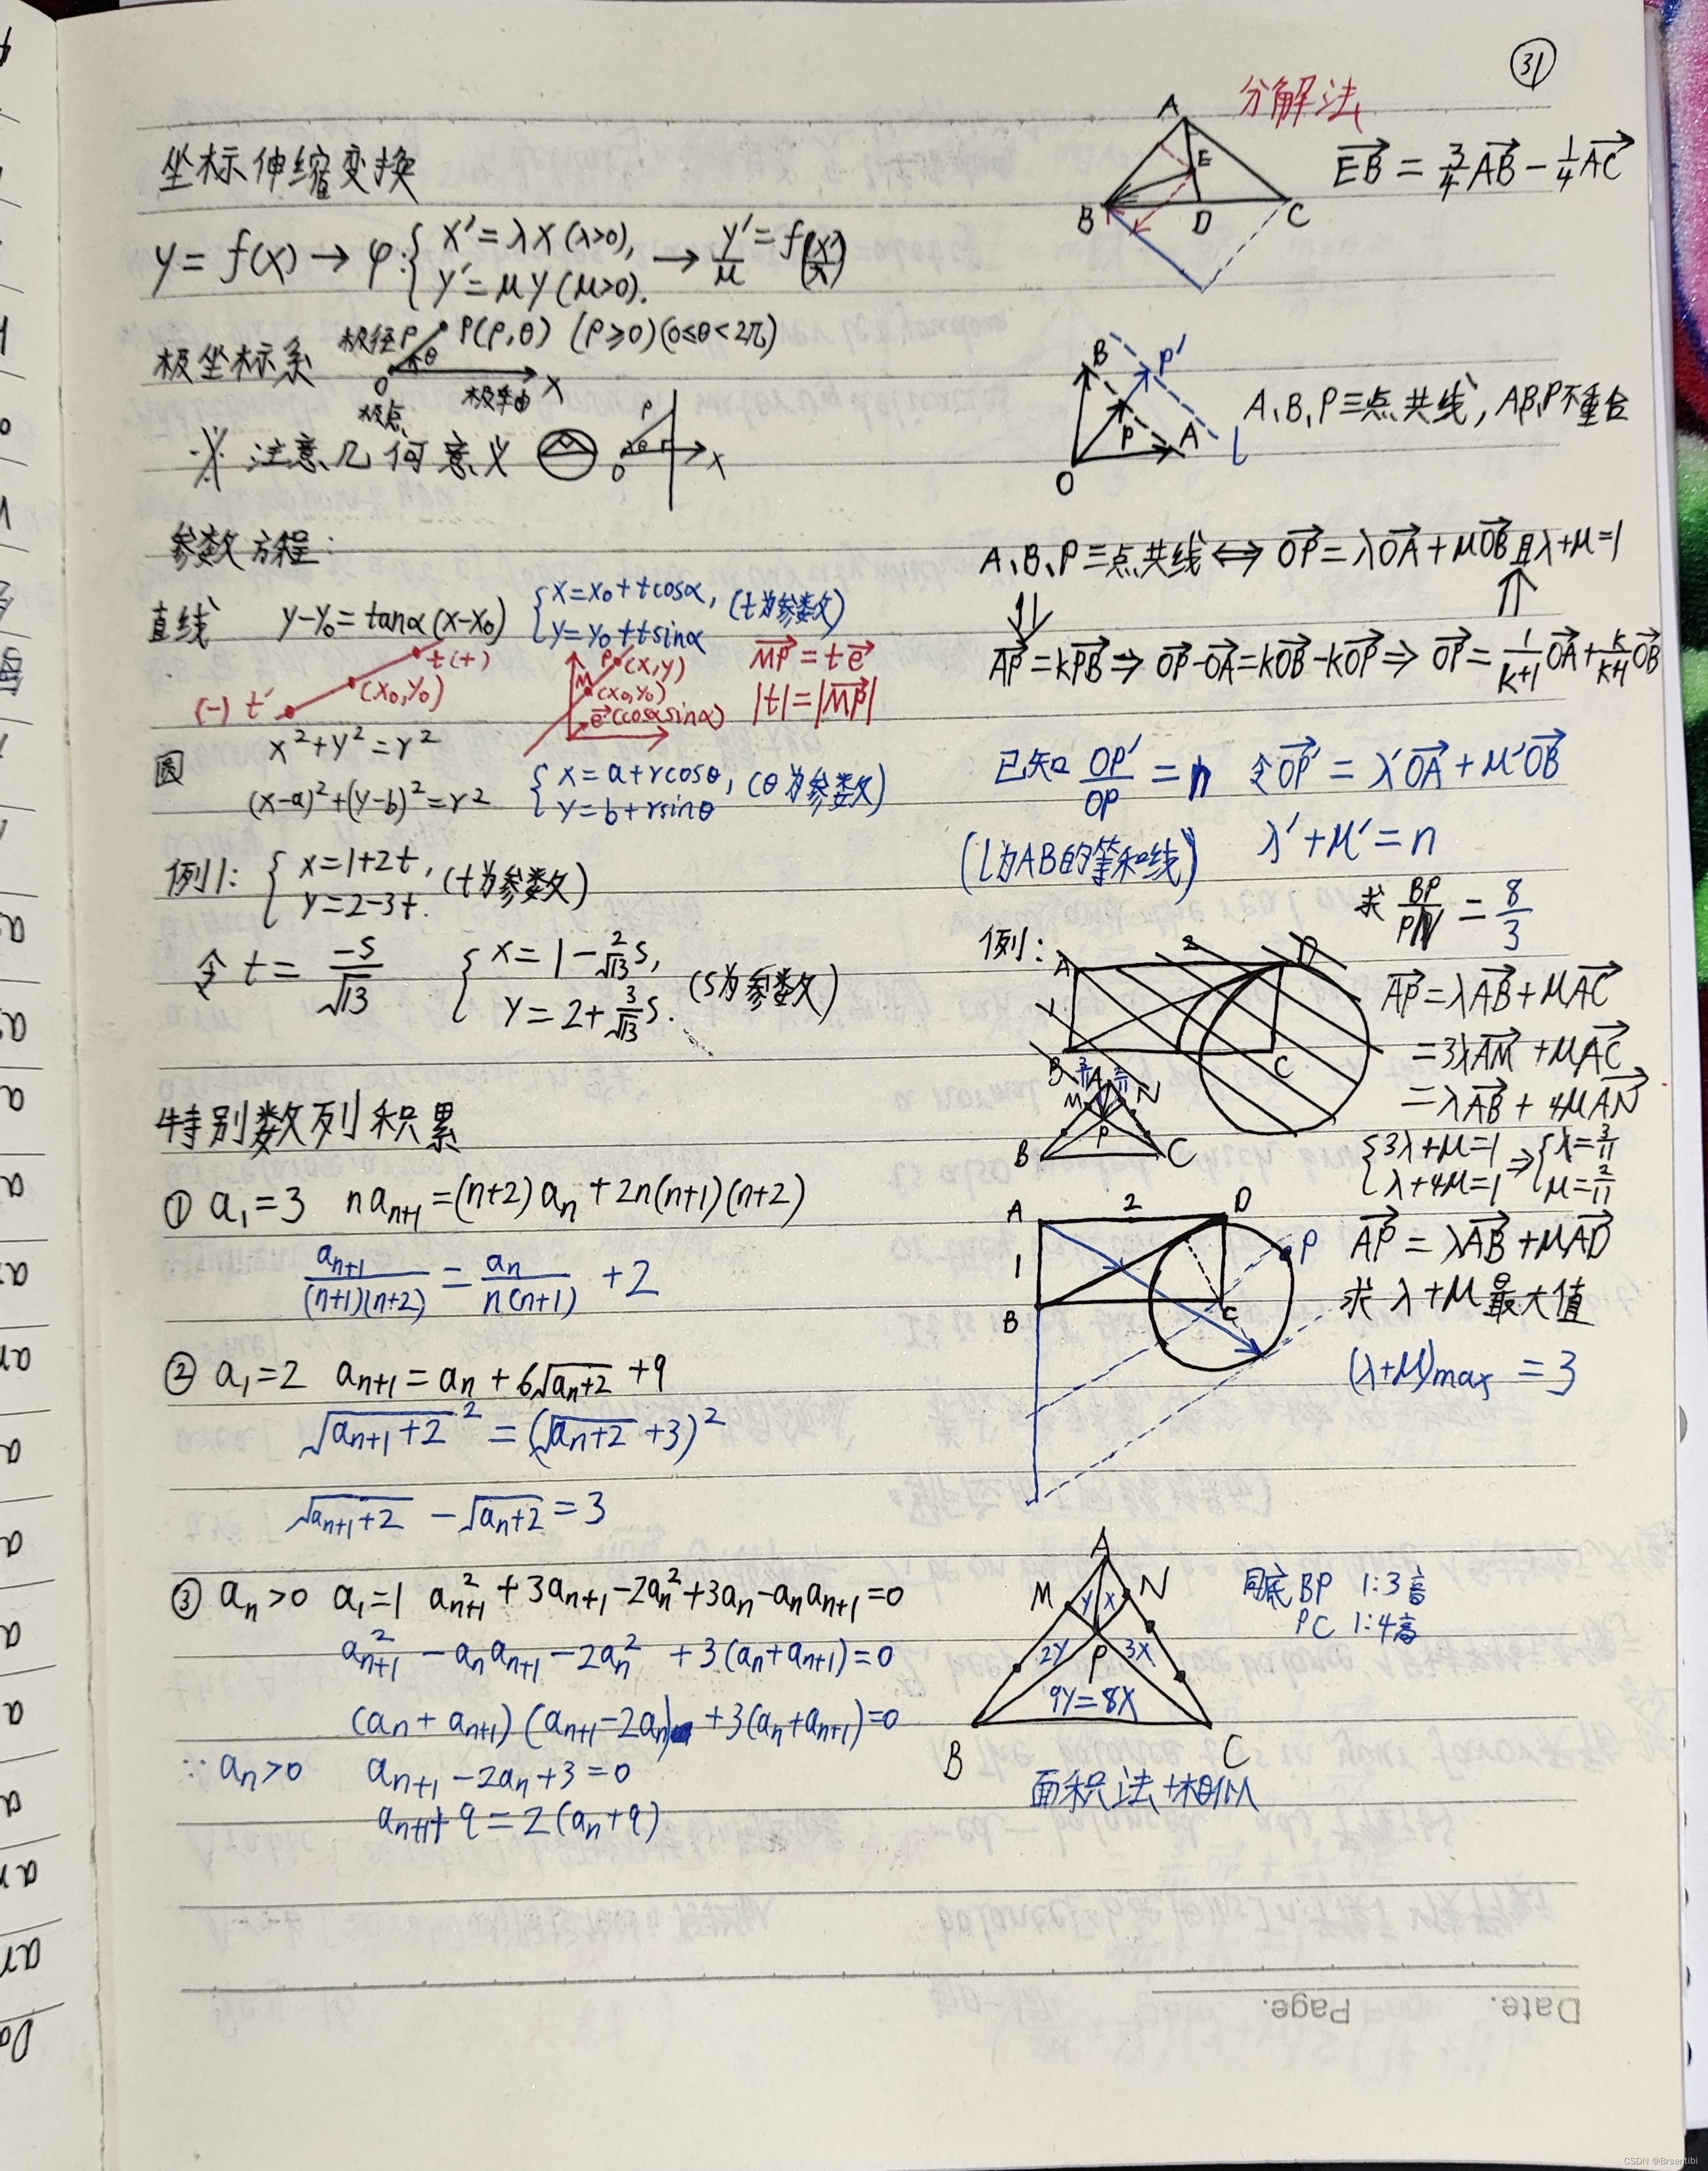 31
坐标伸缩变换
y = f(x) → φ:{ x′ = λx (λ>0), y′ = μy (μ>0). → y′/μ = f(x′/λ)
极坐标系 极径ρ P(ρ,θ) (ρ≥0)(0≤θ<2π)
θ
O 极点 极轴 x
※ 注意几何意义 ρ θ O x
参数方程:
直线 y-y₀=tanα(x-x₀) { x=x₀+tcosα, y=y₀+tsinα (t为参数)
t(+) (x₀,y₀) (-) t′
P(x,y) M (x₀,y₀) e⃗(cosαsinα)
MP⃗ = te⃗
|t|=|MP⃗|
圆 x²+y²=r²
(x-a)²+(y-b)²=r² { x=a+rcosθ, y=b+rsinθ (θ为参数)
例1: { x=1+2t, y=2-3t. (t为参数)
令 t = -s/√13 { x=1-2/√13 s, y=2+3/√13 s. (s为参数)
特别数列积累
① a₁=3 naₙ₊₁=(n+2)aₙ+2n(n+1)(n+2)
aₙ₊₁/(n+1)(n+2) = aₙ/n(n+1) +2
② a₁=2 aₙ₊₁=aₙ+6√(aₙ+2) +9
√(aₙ₊₁+2)² = (√(aₙ+2) +3)²
√(aₙ₊₁+2) - √(aₙ+2) = 3
③ aₙ>0 a₁=1 aₙ₊₁²+3aₙ₊₁-2aₙ²+3aₙ-aₙaₙ₊₁=0
aₙ₊₁² - aₙaₙ₊₁ - 2aₙ² + 3(aₙ+aₙ₊₁)=0
(aₙ+aₙ₊₁)(aₙ₊₁-2aₙ) +3(aₙ+aₙ₊₁)=0
∵ aₙ>0 aₙ₊₁-2aₙ+3=0
aₙ₊₁+9=2(aₙ+9)
分解法
A E B D C
EB⃗ = 3/4 AB⃗ - 1/4 AC⃗
B P′ P A O l
A、B、P三点共线, A,B,P不重合
A、B、P三点共线 ⟺ OP⃗=λOA⃗+μOB⃗且λ+μ=1
⇓ ⇑
AP⃗=kPB⃗ ⇒ OP⃗-OA⃗=kOB⃗-kOP⃗ ⇒ OP⃗=1/(k+1) OA⃗+k/(k+1) OB⃗
已知 OP′/OP = n 令OP⃗′ = λ′OA⃗+μ′OB⃗
(l为AB的等和线) λ′+μ′=n
求 BP/PN = 8/3
例1:
A 2 D B C
3/11 A 2/11 M N P B C
AP⃗=λAB⃗+μAC⃗
=3λAM⃗+μAC⃗
=λAB⃗+4μAN⃗
{ 3λ+μ=1 λ+4μ=1 ⇒ { λ=3/11 μ=2/11
A 2 D 1 B C P
AP⃗ = λAB⃗+μAD⃗
求 λ+μ 最大值
(λ+μ)max = 3
A M N y x 2y P 3x 9y=8x B C
同底 BP 1:3高
PC 1:4高
面积法+相似
Date. Page.
CSDN @Brsentibi